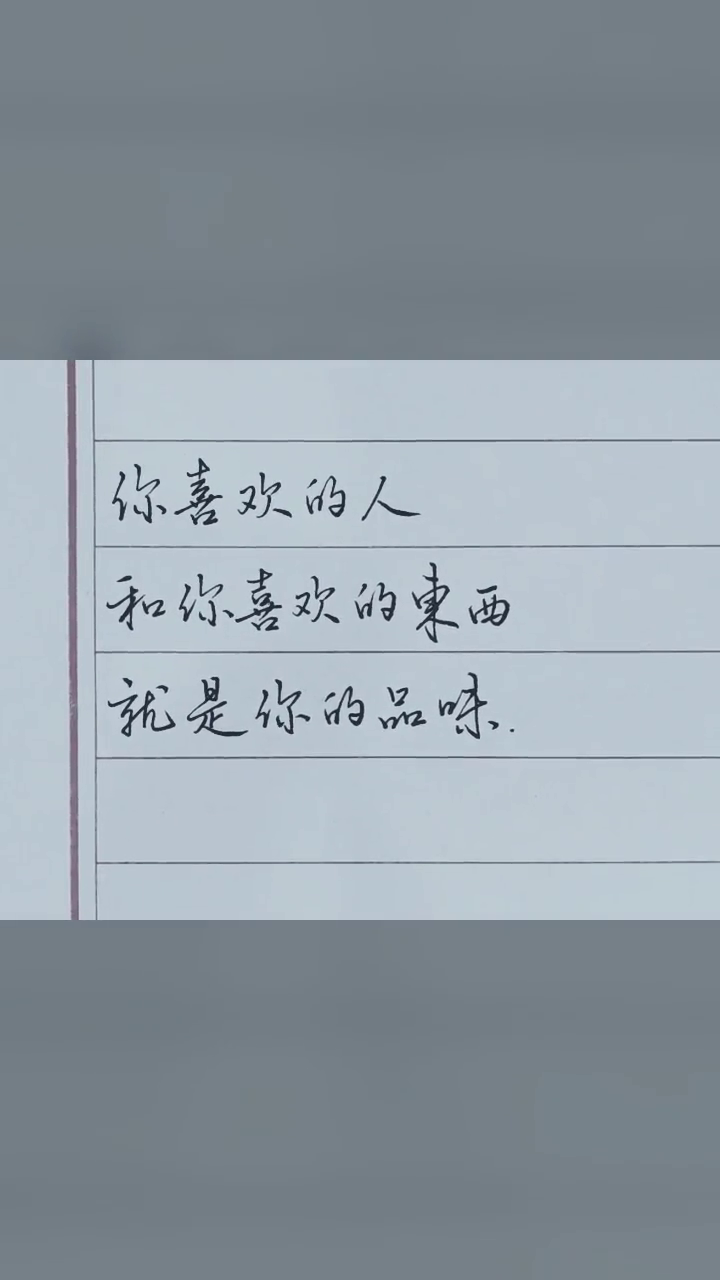 你喜欢的人
和你喜欢的東西
就是你的品味.